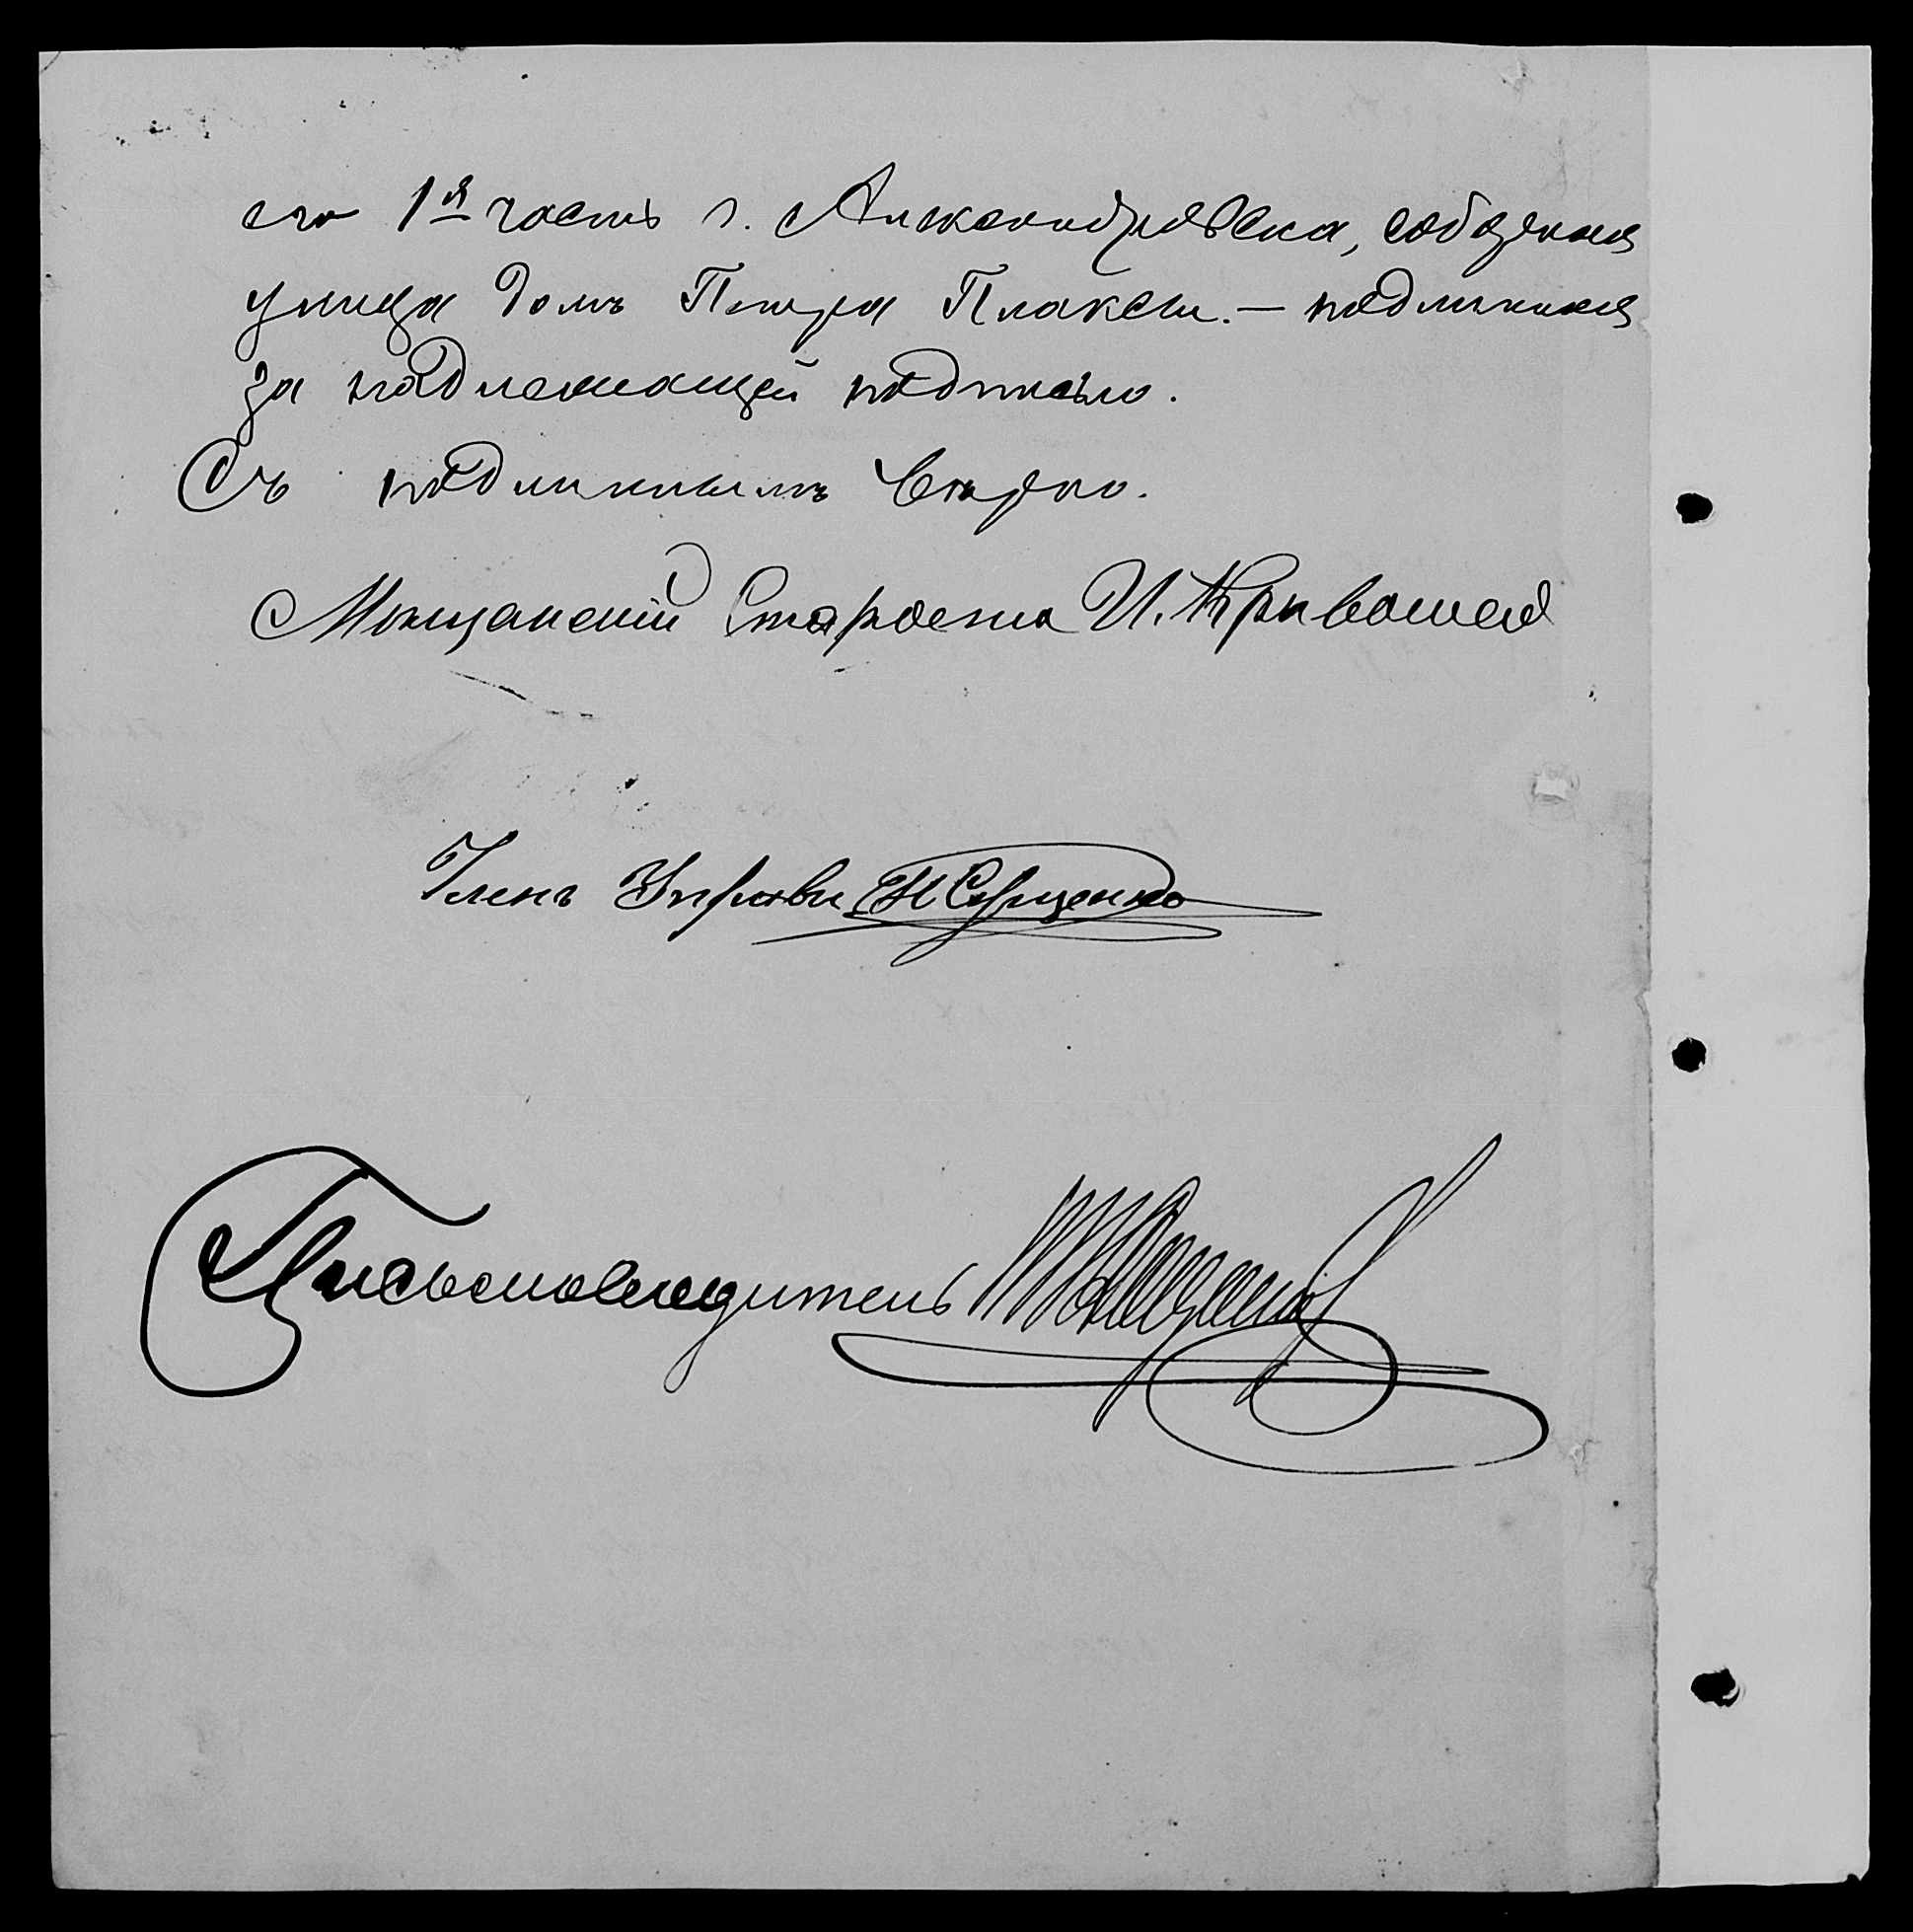 его 1я часть г. Александровска, соборная
улица домъ Петра Плаксы. — подлинная
за надлежащей подписью.
Съ подлиннымъ вѣрно.
Мѣщанскій Староста И. Кривошей
Членъ Управы
Письмоводитель